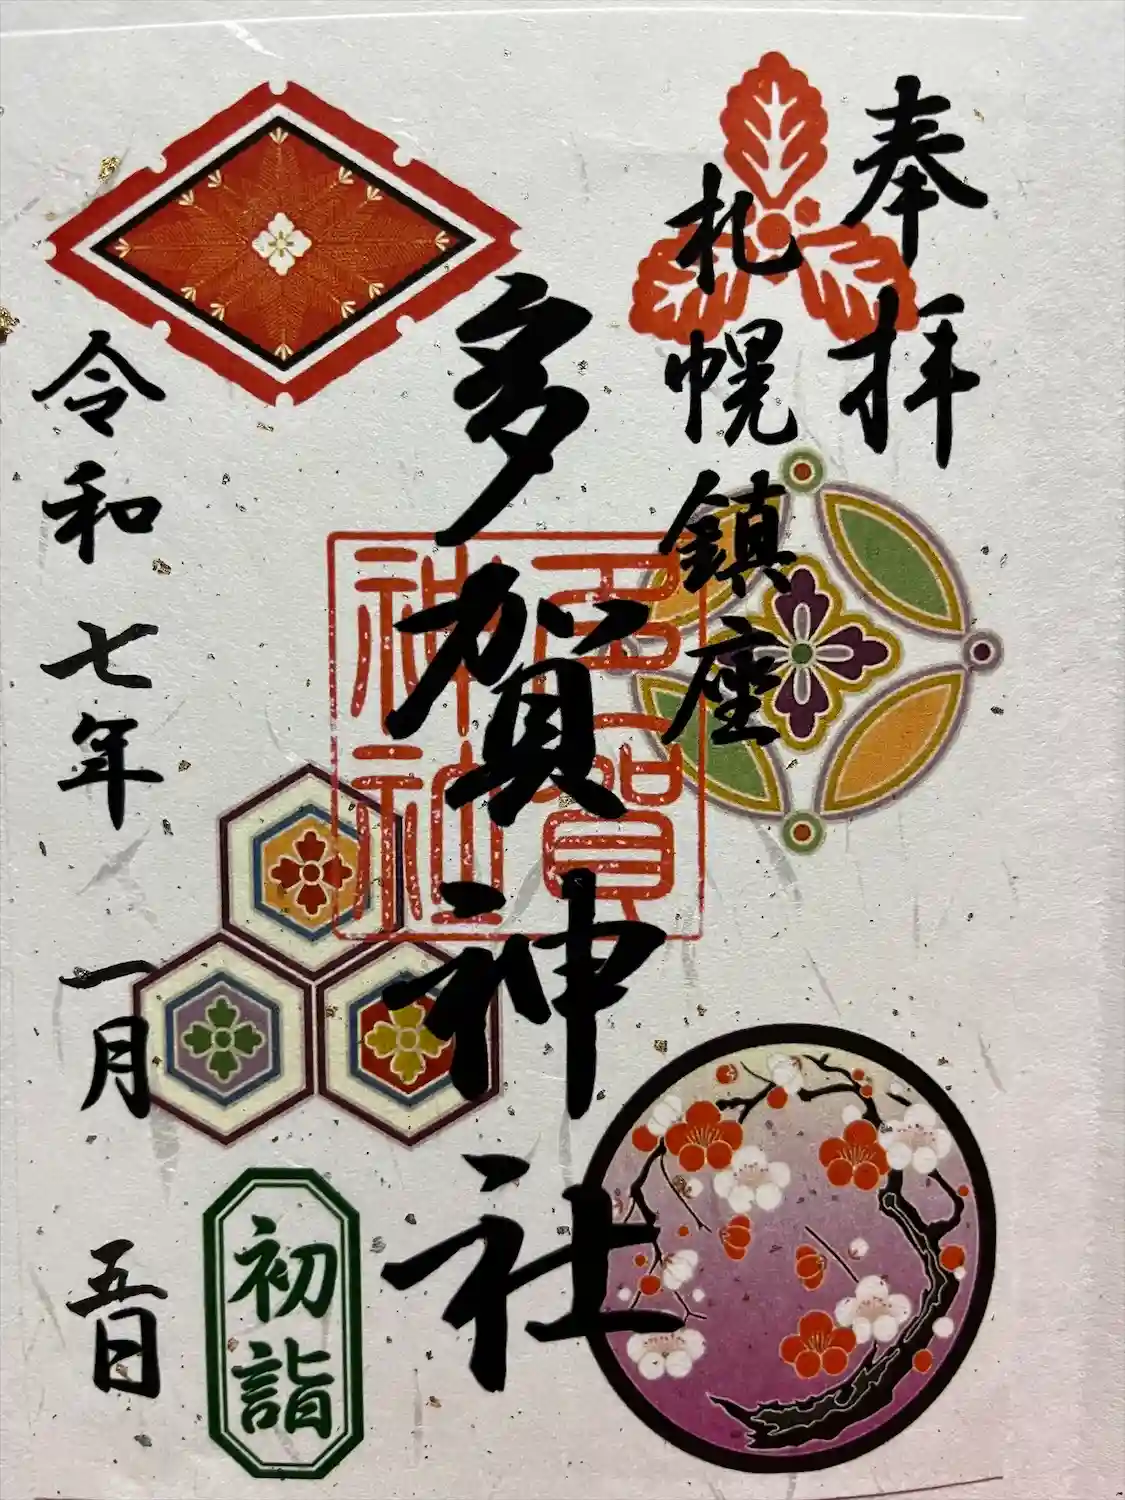 奉拝
札幌鎮座
多賀神社
多賀神社
令和七年一月五日
初詣